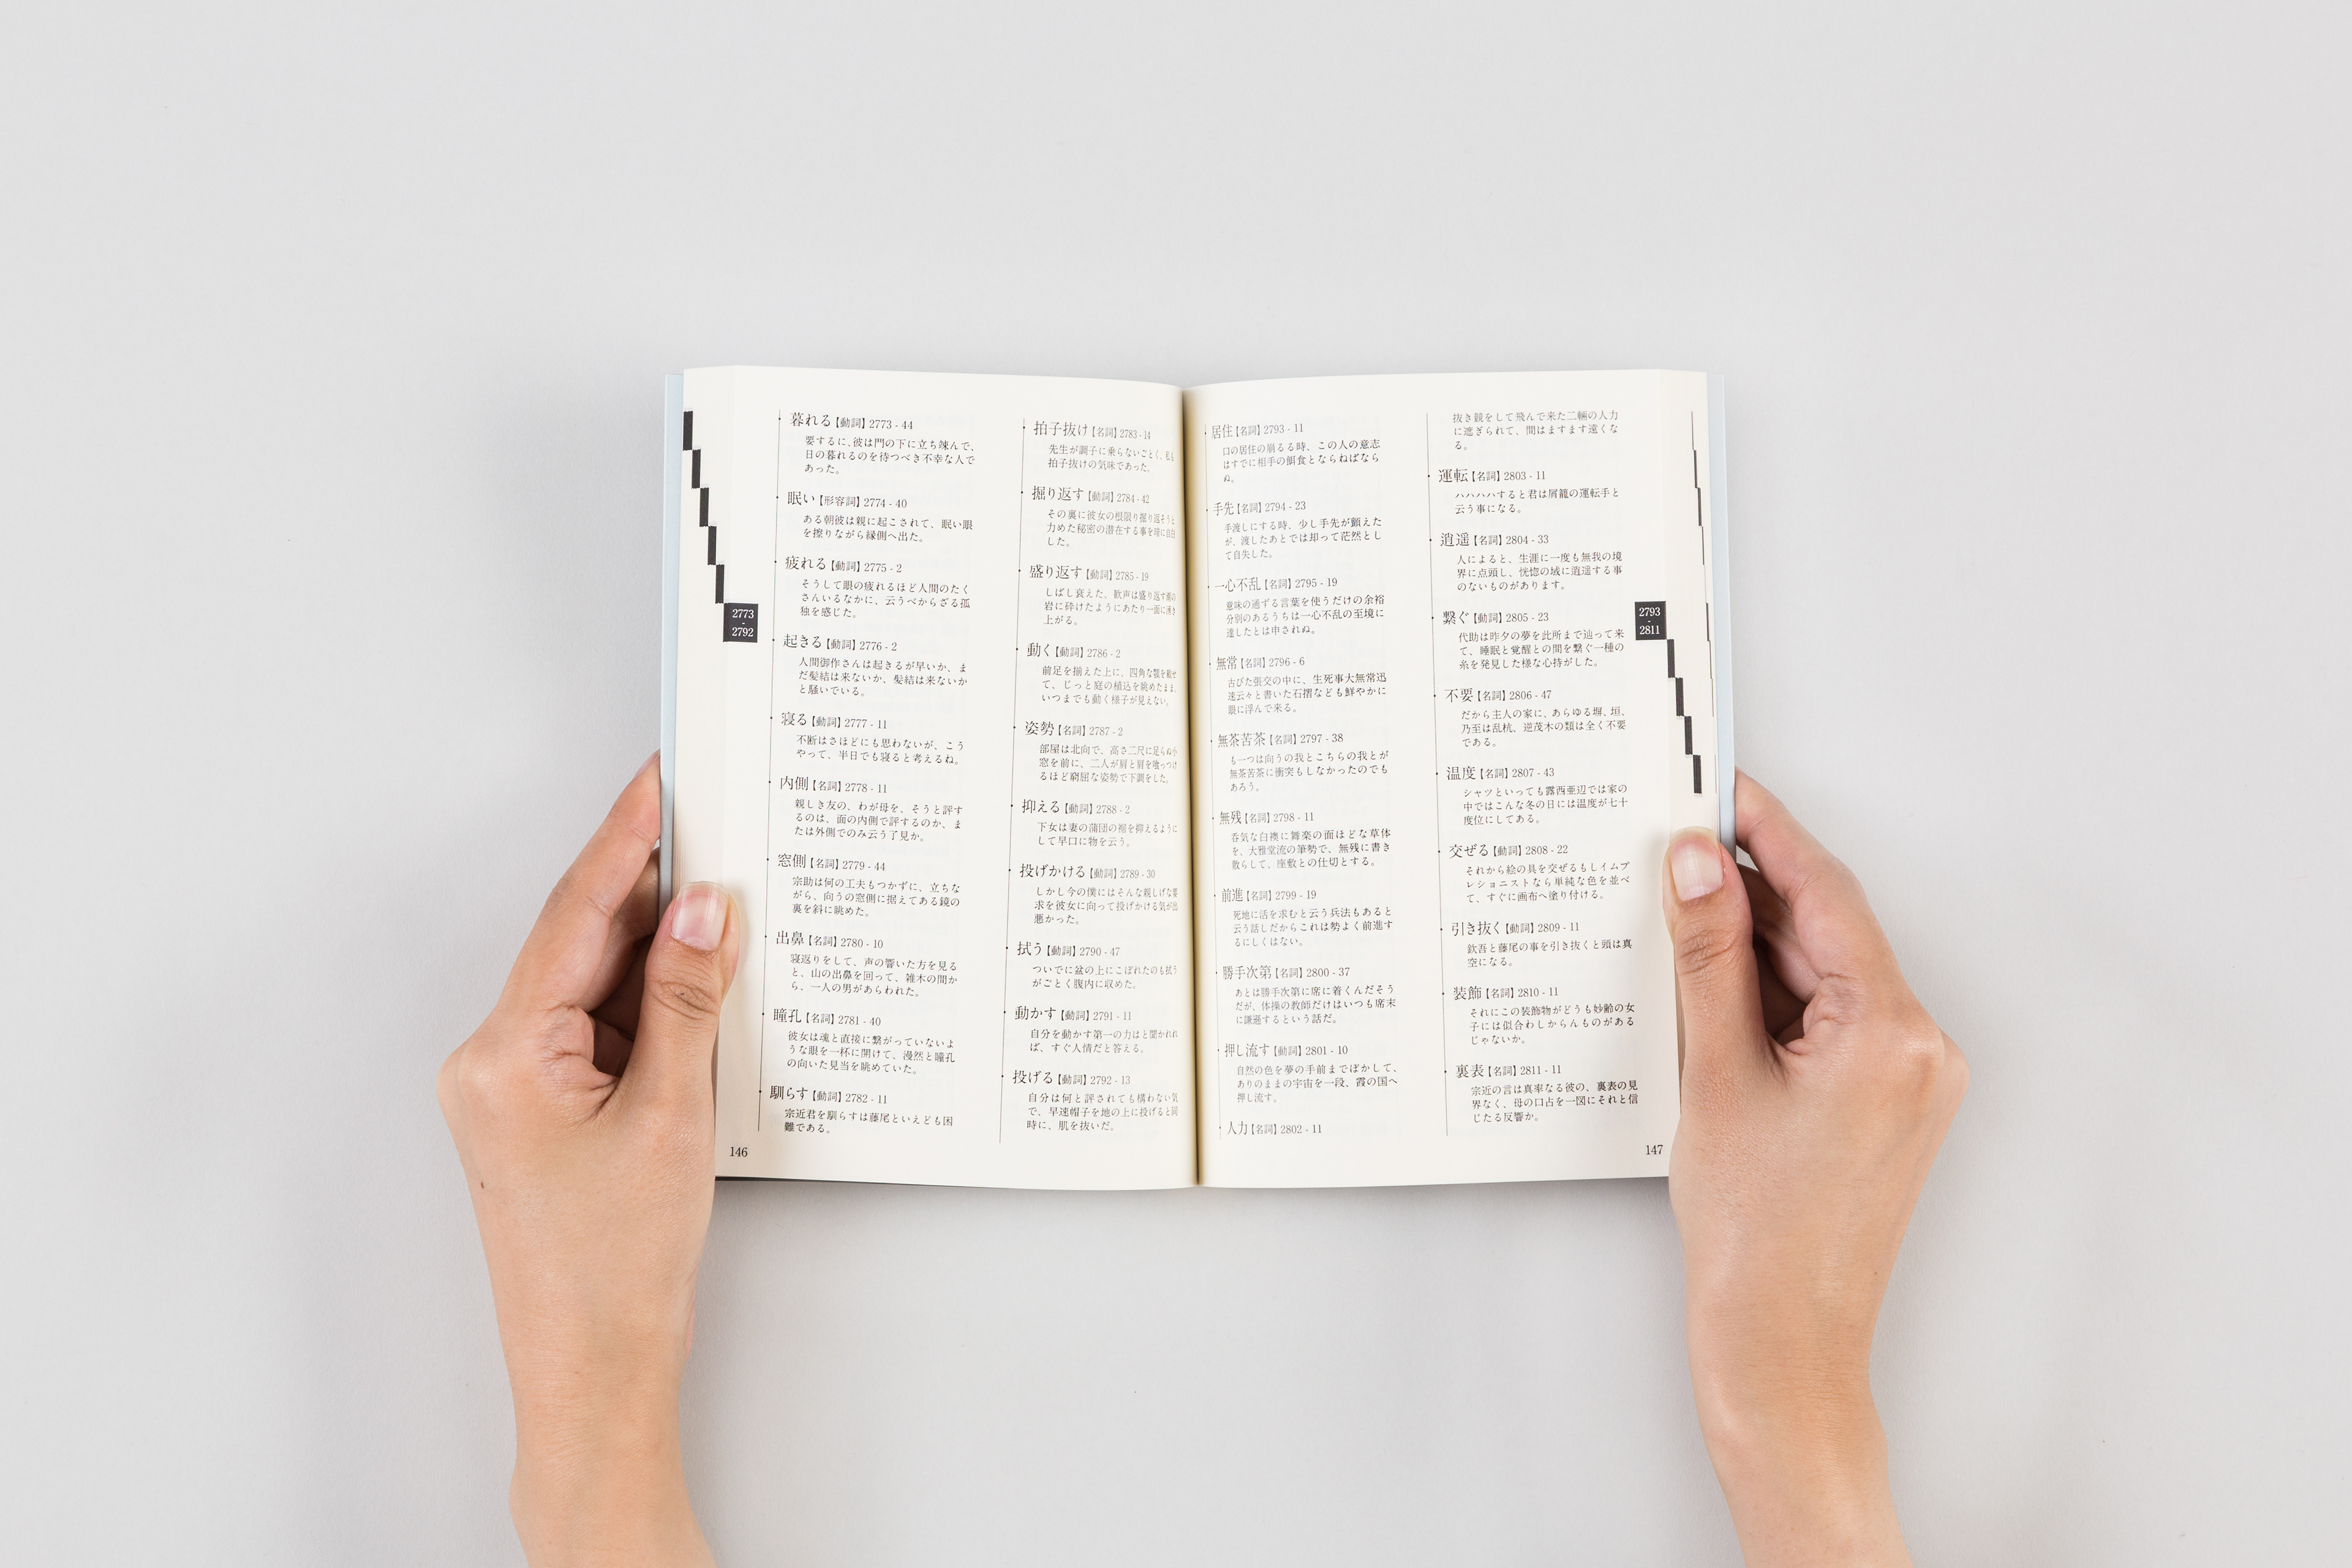 2773
-
2792
暮れる【動詞】2773 - 44
要するに、彼は門の下に立ち竦んで、
日の暮れるのを待つべき不幸な人で
あった。
眠い【形容詞】2774 - 40
ある朝彼は親に起こされて、眠い眼
を擦りながら縁側へ出た。
疲れる【動詞】2775 - 2
そうして眼の疲れるほど人間のたく
さんいるなかに、云うべからざる孤
独を感じた。
起きる【動詞】2776 - 2
人間御作さんは起きるが早いか、ま
だ髪結は来ないか、髪結は来ないか
と騒いでいる。
寝る【動詞】2777 - 11
不断はさほどにも思わないが、こう
やって、半日でも寝ると考えるね。
内側【名詞】2778 - 11
親しき友の、わが母を、そうと評す
るのは、面の内側で評するのか、ま
たは外側でのみ云う了見か。
窓側【名詞】2779 - 44
宗助は何の工夫もつかずに、立ちな
がら、向うの窓側に据えてある鏡の
裏を斜に眺めた。
出鼻【名詞】2780 - 10
寝返りをして、声の響いた方を見る
と、山の出鼻を回って、雑木の間か
ら、一人の男があらわれた。
瞳孔【名詞】2781 - 40
彼女は魂と直接に繋がっていないよ
うな眼を一杯に開けて、漫然と瞳孔
の向いた見当を眺めていた。
馴らす【動詞】2782 - 11
宗近君を馴らすは藤尾といえども困
難である。
拍子抜け【名詞】2783 - 14
先生が調子に乗らないごとく、私も
拍子抜けの気味であった。
掘り返す【動詞】2784 - 42
その裏に彼女の根限り掘り返そうと
力めた秘密の潜在する事を暗に自白
した。
盛り返す【動詞】2785 - 19
しばし衰えた、歓声は盛り返す潮の
岩に砕けたようにあたり一面に湧き
上がる。
動く【動詞】2786 - 2
前足を揃えた上に、四角な顎を載せ
て、じっと庭の植込を眺めたまま、
いつまでも動く様子が見えない。
姿勢【名詞】2787 - 2
部屋は北向で、高さ二尺に足らぬ小
窓を前に、二人が肩と肩を喰っつけ
るほど窮屈な姿勢で下調をした。
抑える【動詞】2788 - 2
下女は妻の蒲団の裾を抑えるように
して早口に物を云う。
投げかける【動詞】2789 - 30
しかし今の僕にはそんな親しげな要
求を彼女に向って投げかける気が出
悪かった。
拭う【動詞】2790 - 47
ついでに盆の上にこぼれたのも拭う
がごとく腹内に収めた。
動かす【動詞】2791 - 11
自分を動かす第一の力はと聞かれれ
ば、すぐ人情だと答える。
投げる【動詞】2792 - 13
自分は何と評されても構わない気
で、早速帽子を地の上に投げると同
時に、肌を抜いだ。
146
居住【名詞】2793 - 11
口の居住の崩るる時、この人の意志
はすでに相手の餌食とならねばなら
ぬ。
手先【名詞】2794 - 23
手渡しにする時、少し手先が顫えた
が、渡したあとでは却って茫然とし
て自失した。
一心不乱【名詞】2795 - 19
意味の通ずる言葉を使うだけの余裕
分別のあるうちは一心不乱の至境に
達したとは申されぬ。
無常【名詞】2796 - 6
古びた張交の中に、生死事大無常迅
速云々と書いた石摺なども鮮やかに
眼に浮んで来る。
無茶苦茶【名詞】2797 - 38
も一つは向うの我とこちらの我とが
無茶苦茶に衝突もしなかったのでも
あろう。
無残【名詞】2798 - 11
呑気な白襖に舞楽の面ほどな草体
を、大雅堂流の筆勢で、無残に書き
散らして、座敷との仕切とする。
前進【名詞】2799 - 19
死地に活を求むと云う兵法もあると
云う話しだからこれは勢よく前進す
るにしくはない。
勝手次第【名詞】2800 - 37
あとは勝手次第に席に着くんだそう
だが、体操の教師だけはいつも席末
に謙遜するという話だ。
押し流す【動詞】2801 - 10
自然の色を夢の手前までぼかして、
ありのままの宇宙を一段、霞の国へ
押し流す。
人力【名詞】2802 - 11
抜き競をして飛んで来た二輛の人力
に遮ぎられて、間はますます遠くな
る。
運転【名詞】2803 - 11
ハハハハすると君は屑籠の運転手と
云う事になる。
逍遥【名詞】2804 - 33
人によると、生涯に一度も無我の境
界に点頭し、恍惚の域に逍遥する事
のないものがあります。
繋ぐ【動詞】2805 - 23
代助は昨夕の夢を此所まで辿って来
て、睡眠と覚醒との間を繋ぐ一種の
糸を発見した様な心持がした。
不要【名詞】2806 - 47
だから主人の家に、あらゆる塀、垣、
乃至は乱杭、逆茂木の類は全く不要
である。
温度【名詞】2807 - 43
シャツといっても露西亜辺では家の
中ではこんな冬の日には温度が七十
度位にしてある。
交ぜる【動詞】2808 - 22
それから絵の具を交ぜるもしイムプ
レショニストなら単純な色を並べ
て、すぐに画布へ塗り付ける。
引き抜く【動詞】2809 - 11
欽吾と藤尾の事を引き抜くと頭は真
空になる。
装飾【名詞】2810 - 11
それにこの装飾物がどうも妙齢の女
子には似合わしからんものがある
じゃないか。
裏表【名詞】2811 - 11
宗近の言は真率なる彼の、裏表の見
界なく、母の口占を一図にそれと信
じたる反響か。
2793
-
2811
147